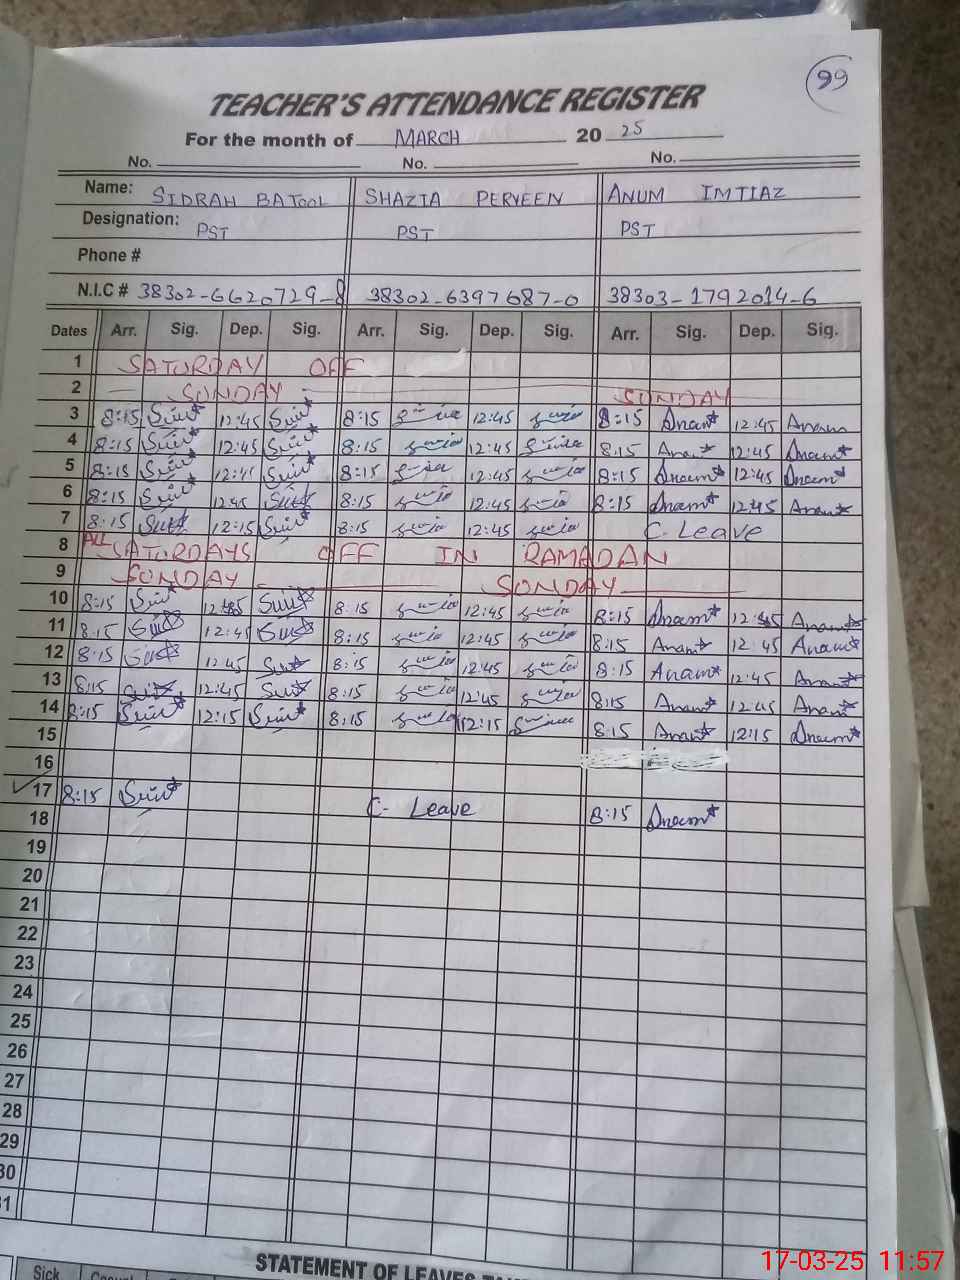 99
TEACHER'S ATTENDANCE REGISTER
For the month of MARCH 20 25
No. No. No.
Name: SIDRAH BATOOL SHAZIA PERVEEN ANUM IMTIAZ
Designation: PST PST PST
Phone #
N.I.C # 38302-6620729-8 38302-6397687-0 38303-1792014-6
Dates Arr. Sig. Dep. Sig. Arr. Sig. Dep. Sig. Arr. Sig. Dep. Sig.
1 SATURDAY OFF
2 SUNDAY SUNDAY
3 8:15 12:45 8:15 12:45 8:15 Anam 12:45 Anam
4 8:15 12:45 8:15 12:45 8:15 Anam 12:45 Anam
5 8:15 12:45 8:15 12:45 8:15 Anam 12:45 Anam
6 8:15 12:45 8:15 12:45 8:15 Anam 12:45 Anam
7 8:15 12:15 8:15 12:45 C. Leave
8 ALL SATURDAYS OFF IN RAMADAN
9 SUNDAY SUNDAY
10 8:15 12:45 8:15 12:45 8:15 Anam 12:45 Anam
11 8:15 12:45 8:15 12:45 8:15 Anam 12:45 Anam
12 8:15 12:45 8:15 12:45 8:15 Anam 12:45 Anam
13 8:15 12:45 8:15 12:45 8:15 Anam 12:45 Anam
14 8:15 12:15 8:15 12:15 8:15 Anam 12:15 Anam
15
16
17 8:15 C- Leave 8:15 Anam
18
19
20
21
22
23
24
25
26
27
28
29
30
31
STATEMENT OF LEAVES
Sick Casual
17-03-25 11:57